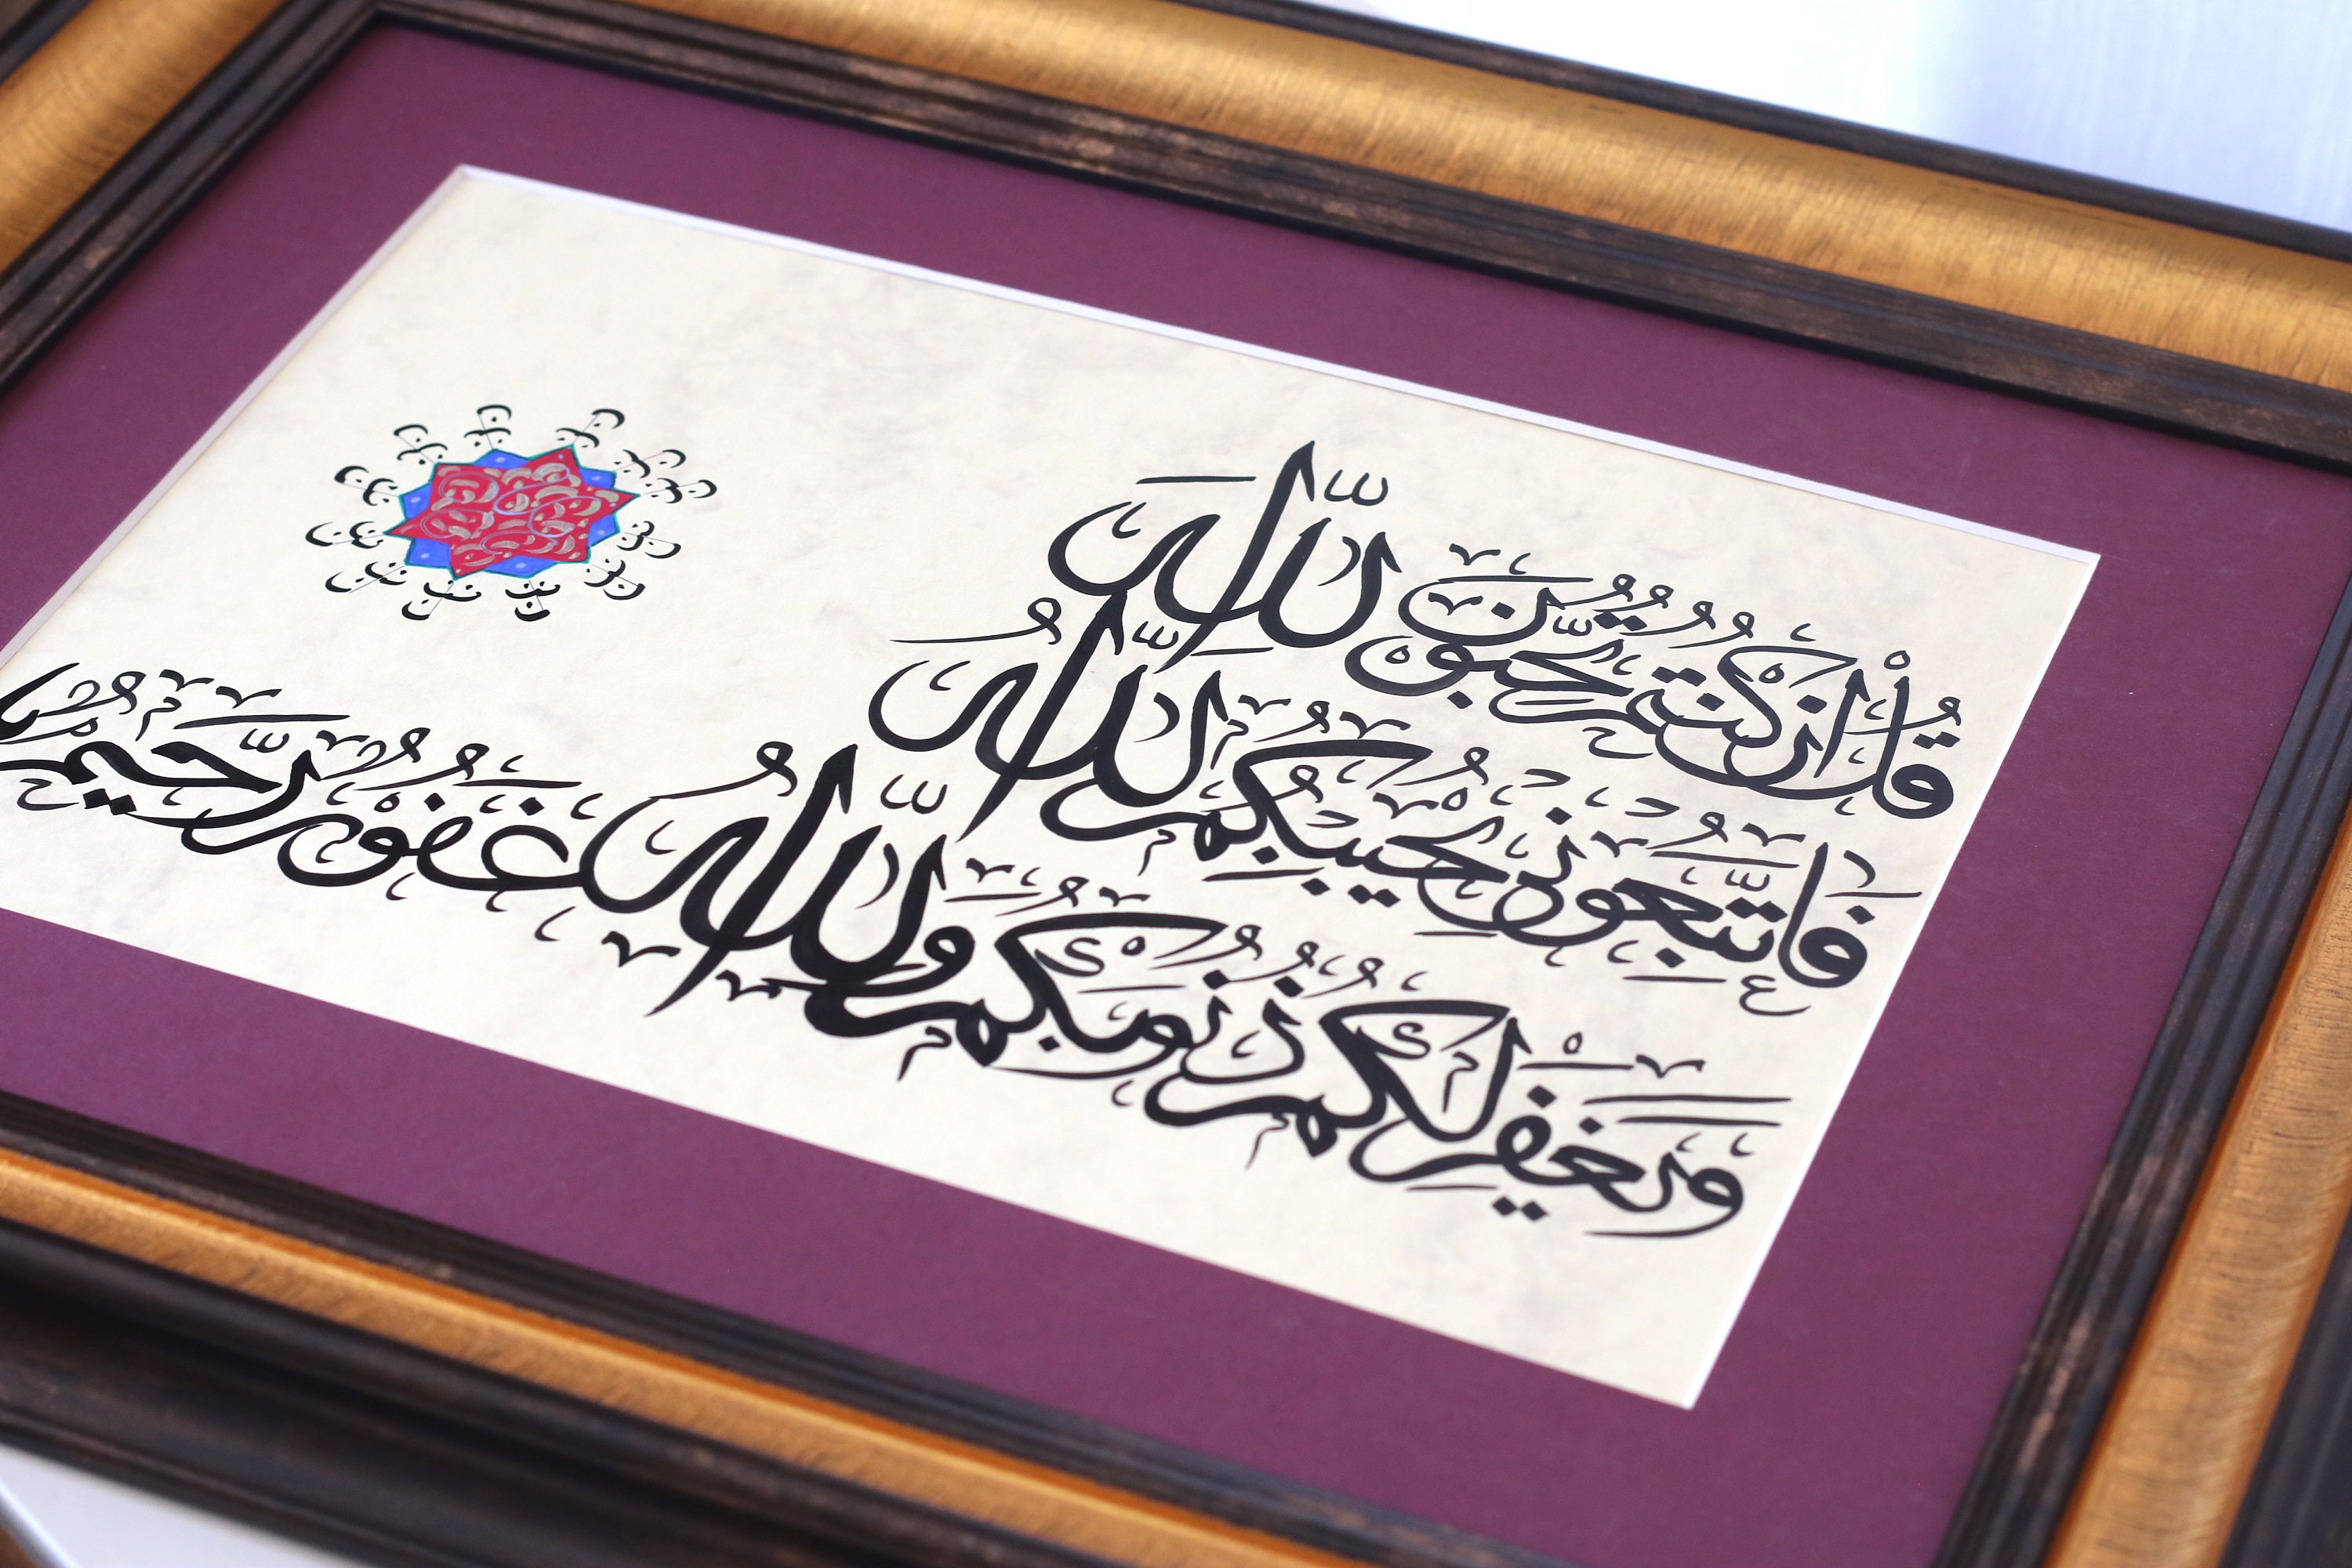 قُلْ إِنْ كُنْتُمْ تُحِبُّونَ اللّٰهَ
فَاتَّبِعُونِي يُحْبِبْكُمُ اللّٰهُ
وَيَغْفِرْ لَكُمْ ذُنُوبَكُمْ وَاللّٰهُ غَفُورٌ رَحِيمٌ